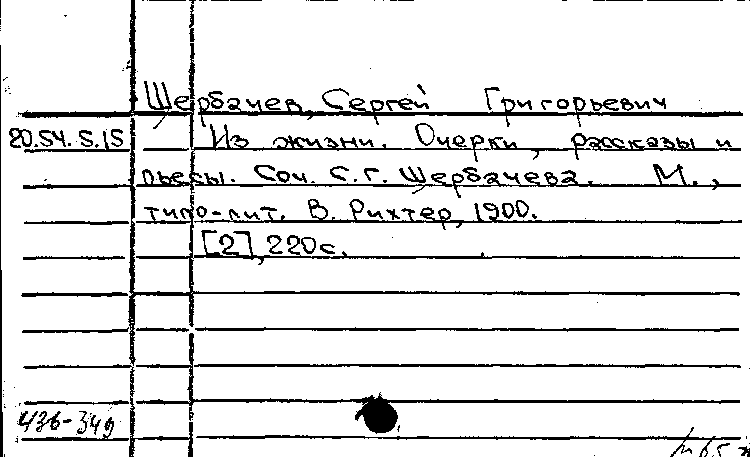 Щербачев, Сергей Григорьевич
20.54.5.15 Из жизни. Очерки, рассказы и
пьесы. Соч. С.г. Щербачева. М.,
типо-лит. В. Рихтер, 1900.
[2], 220с.
436-349